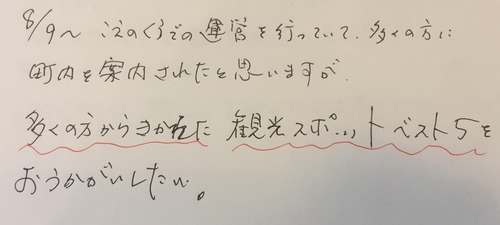 8/9〜 こえのくらでの運営を行っていて、多くの方に
町内を案内されたと思いますが、
多くの方からきかれた 観光スポットベスト5を
おうかがいしたい。